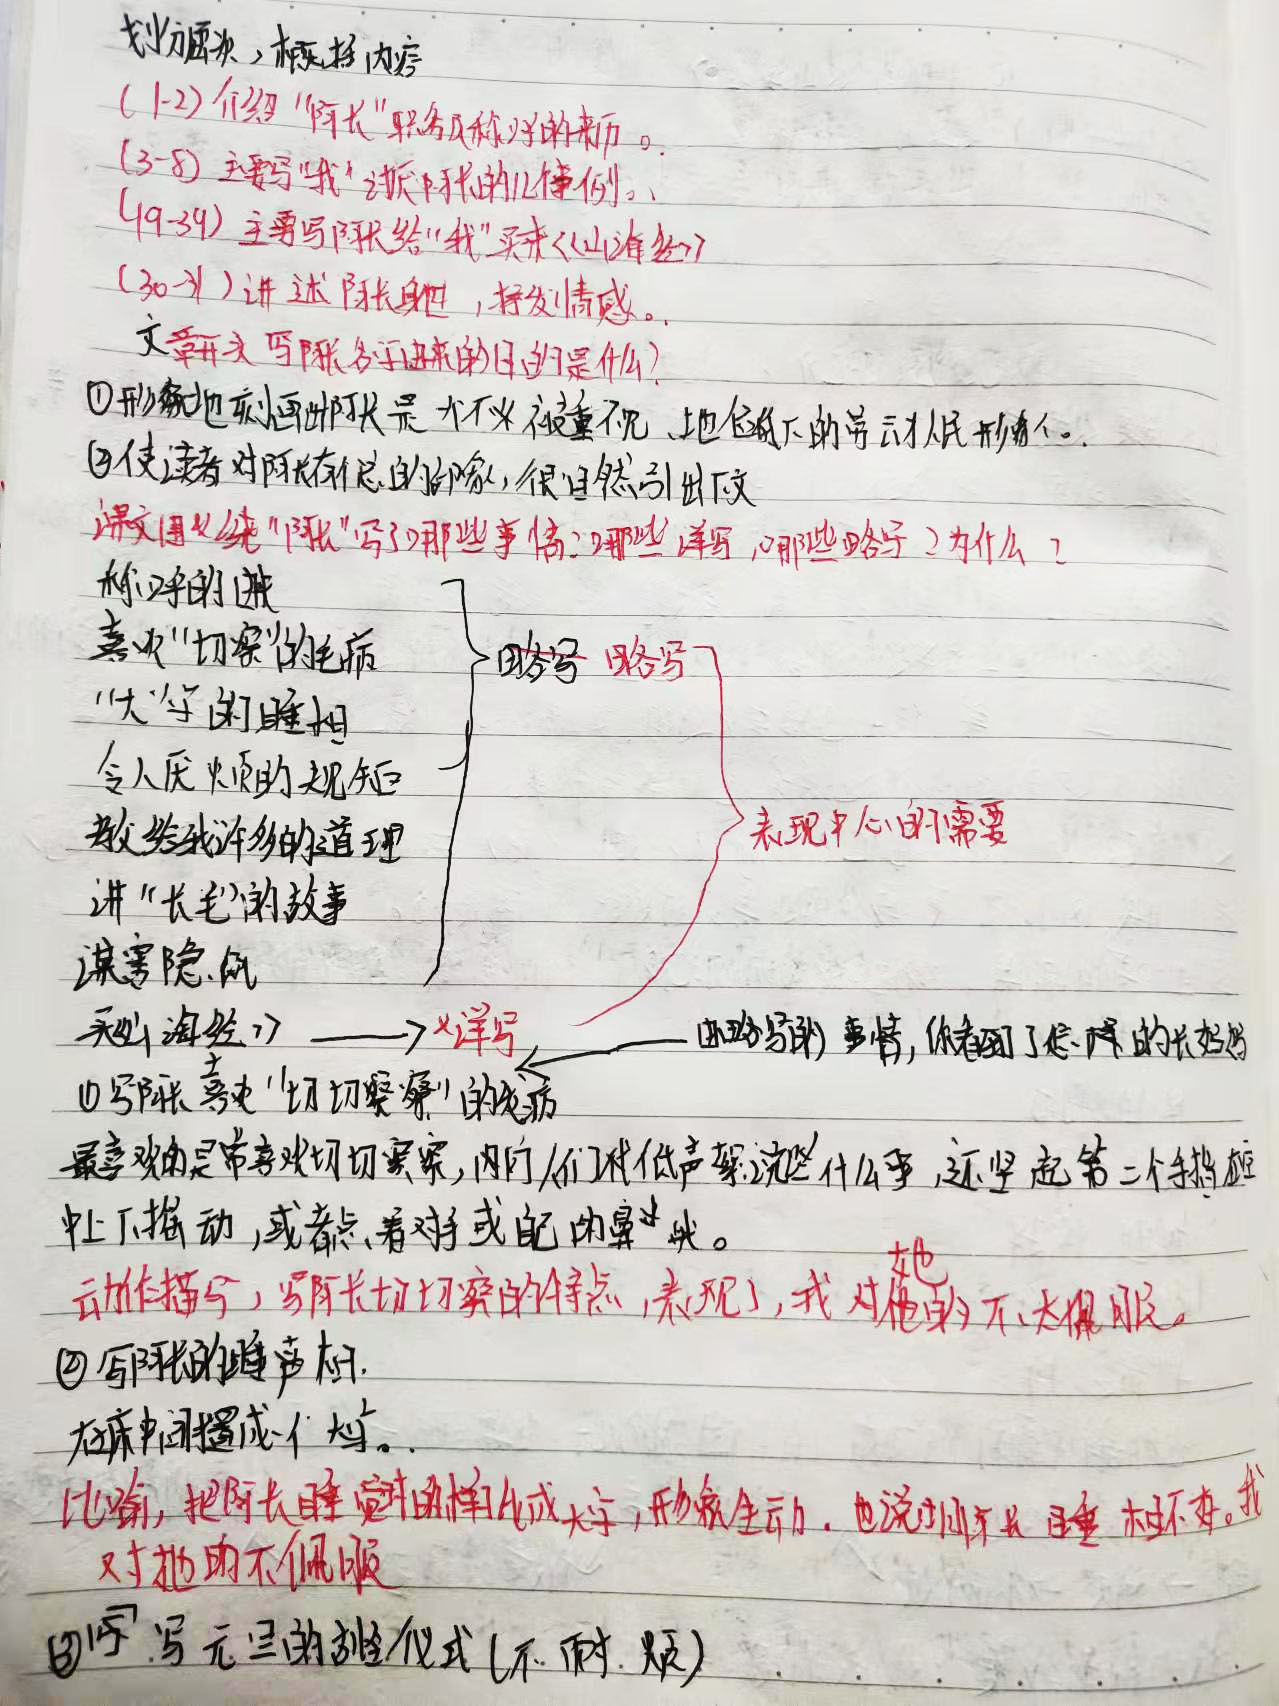 划分层次，概括内容
(1-2) 介绍"阿长"职务及称呼的来历。
(3-8) 主要写"我"讨厌阿长的几件事例。
(19-39) 主要写阿长给"我"买来《山海经》
(30-31) 讲述阿长身世，抒发情感。
文章开头写阿长名字由来的目的是什么？
①形象地刻画出阿长是一个不必被重视、地位低下的劳动人民形象。
②使读者对阿长有个总的印象，很自然引出下文
课文围绕"阿长"写了哪些事情？哪些详写，哪些略写？为什么？
称呼的由来
喜欢"切察"的毛病
略写 略写
"大"字的睡相
令人厌烦的规矩
教给我许多的道理
表现中心的需要
讲"长毛"的故事
谋害隐鼠
买《山海经》 → 详写
由略写的事情，你看到了怎样的长妈妈
①写阿长喜欢"切切察察"的毛病
最喜欢的是常喜欢切切察察，向人们低声絮说些什么事，还竖起第二个手指，在空
中上下摇动，或者点着对手或自己的鼻尖。
动作描写，写阿长切切察的特点，表现了，我对她的不大佩服。
②写阿长的睡相
在床中间摆成一个大字。
比喻，把阿长睡觉时的样子比成大字，形象生动，也说明阿长睡相不好。我
对她的不佩服
③写元旦的古怪仪式(不耐烦)